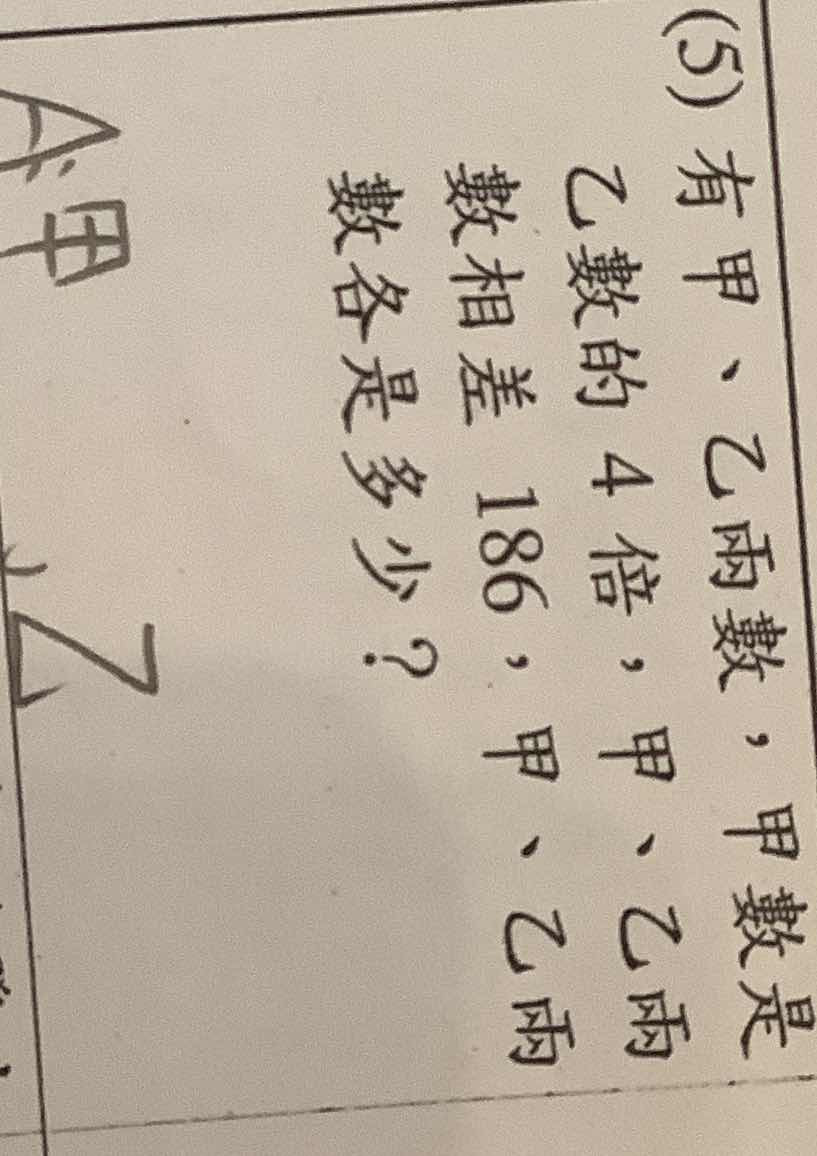 (5) 有甲、乙兩數，甲數是
乙數的 4 倍，甲、乙兩
數相差 186，甲、乙兩
數各是多少？
A: 甲 乙